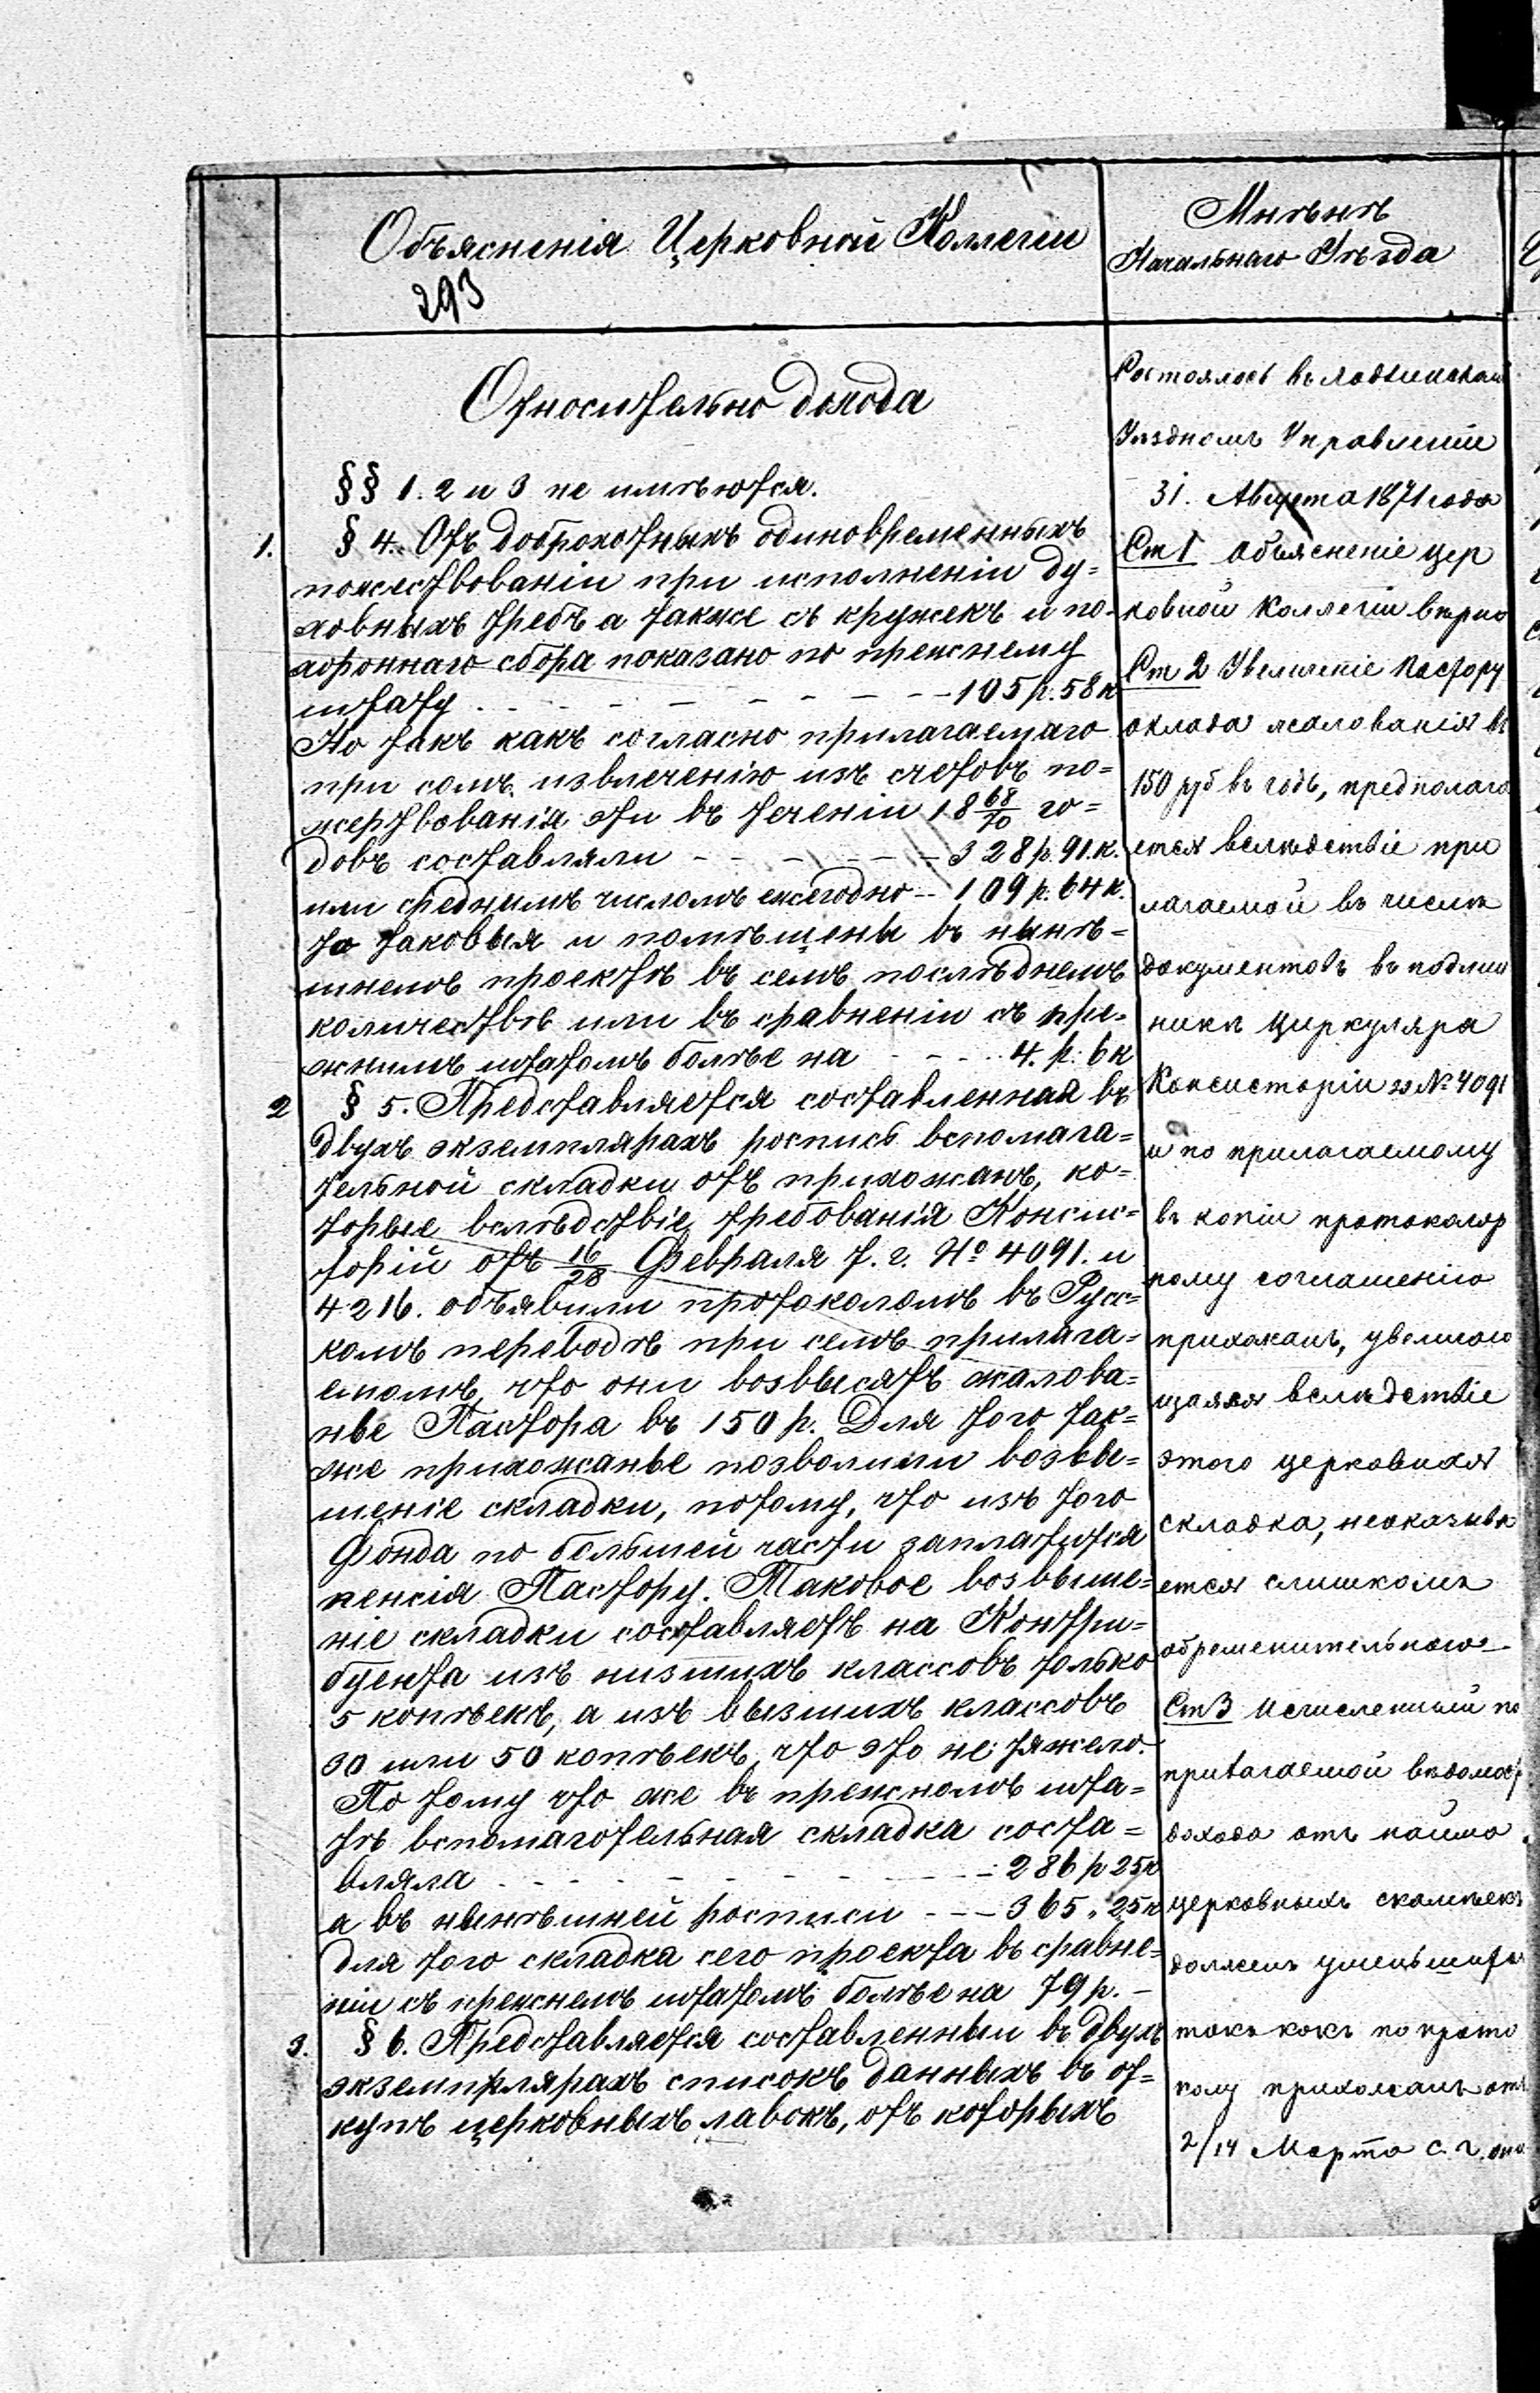 Объясненія Церковной Коллегіи
293
Относительно дохода
§§ 1. 2 и 3 не имѣются.
1. § 4. Отъ доброхотныхъ одиновременныхъ
пожествованіи при исполненіи ду=
ховныхъ требъ а также съ кружекъ и по-
хороннаго сбора показано по прежнему
штату - - - - - - - 105 р. 58 к
Но такъ какъ согласно прилагаемаго
при сомъ извлеченію изъ счетовъ по=
жертвованія эти въ теченіи 18 68/70 го=
довъ составляли - - - - - - 328 р. 91. к.
или среднимъ числомъ ежегодно - - 109 р. 64 к.
то таковыя и помѣщены въ нынѣ=
шнемъ проектѣ въ семъ послѣднемъ
количествѣ или въ сравненіи съ пре-
жнимъ штатомъ болѣе на - - - - 4. р. 6 к
2 § 5. Представляется составленная въ
двухъ экземплярахъ роспись вспомага=
тельной складки отъ прихожанъ, ко=
торые вслѣдствіе требованія Консис=
торій отъ 16/28 Февраля т. г. № 4091. и
4216. объявили протоколомъ въ Русс=
комъ переводѣ при семъ прилага=
емомъ, что они возвысятъ жалова=
нье Пастора въ 150 р. Для того так=
же прихожанье позволили возвы=
шеніе складки, потому, что изъ того
Фонда по большей части заплатится
пенсія Пастору. Таковое возвыше=
ніе складки составляетъ на Контри=
буента изъ низшихъ классовъ только
5 копѣекъ, а изъ вызшихъ классовъ
30 или 50 копѣекъ, что это не тяжело.
По тому что же въ прежномъ шта=
тѣ вспомаготельная складка соста=
вляла - - - - - - - - 286 р 25 к
а въ нынѣшней росписи - - - 365 „ 25 к
для того складка сего проекта въ сравне=
ніи съ прежнемъ штатомъ болѣе на 79 р. -
3. § 6. Представляется составленный въ двухъ
экземплярахъ списокъ данныхъ въ от=
купъ церковныхъ лавокъ, отъ которыхъ
Мнѣнѣ
Начальнаго Уѣзда
Состоялось въ
Уѣздномъ Управленіи
31. Августа 1871 года
Ст 1 объясненіе цер
ковной Коллегіи вѣрно
Ст 2 Увеличеніе Пастору
оклада жалованія въ
150 руб въ годъ, предполага
ется вслѣдствіе при
лагаемой въ числѣ
документовъ въ подлин
никѣ Циркуляра
Консисторіи за № 4091
и по прилагаемому
въ копіи протоколор
ному соглашенію
прихожанъ, увеличаю
щаяся вслѣдствіе
этого церковная
складка, неоказыва
ется слишкомъ
обременительною.
Ст 3 Исчисленный по
прилагаемой вѣдомост
дохода отъ найма
церковныхъ скамѣекъ
долженъ уменьшитъ
такъ какъ по прото
колу прихожанъ отъ
2/14 Марта с. г. они